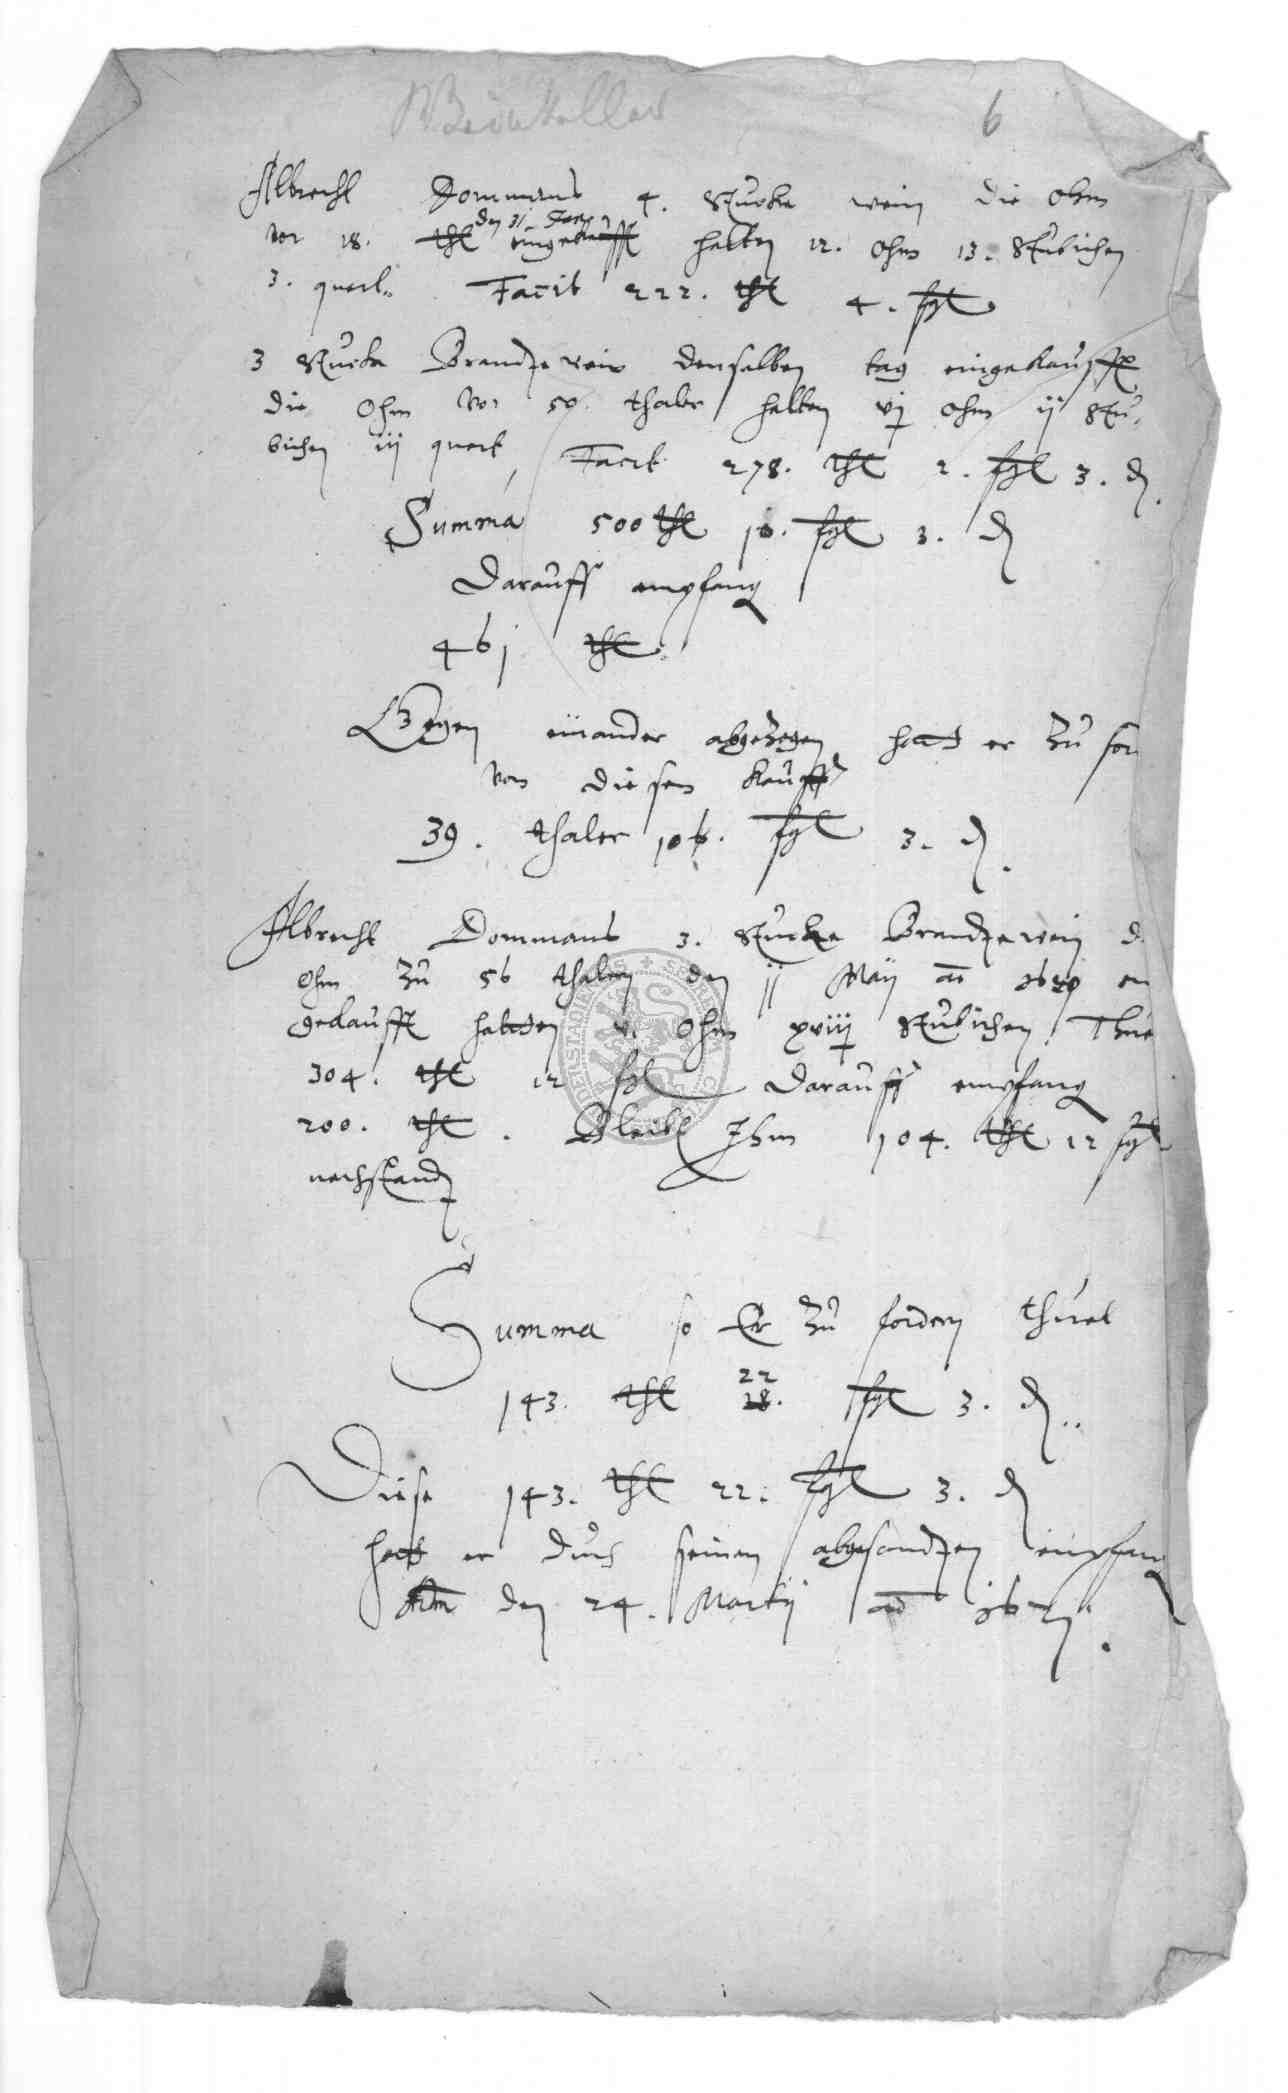 Weinkeller
6
Albrecht Dommans 4. Stucke wein die Ohm
vor 18. thl den 31 eingekaufft halten 12. Ohm 13. Stubichen
3. quart. Facit 222. thl 4. fgl
3 Stucke Brandtewein denselben tag eingekaufft
die Ohm vor 50. thaler halten vj Ohm ij Stu-
bichen iij quart, Facit 278. thl 2. fgl 3. d.
Summa 500 thl fgl 3. d
Darauff empfang
461 thl.
Gegen einander abgezogen hatt er zu for
von diesem kauff
39. thaler fgl 3. d.
Albrecht Dommans 3. Stucke Brandtewein d
Ohm zu 56 thalern den ij Maij ao en
gekaufft haltten v. Ohm xviij Stubichen Thut
304. thl 12 fgl Darauff empfang
200. thl. Bleibt Ihm 104. thl 12 fgl
nachstandt
Summa so Er zu fordern thuet
143. thl 22 18. fgl 3. d..
Diese 143. thl 22. fgl 3. d
hatt er durch seinen abgesandten empfang
den 24. Martij ao
SCHEDERSTADTARCHIV